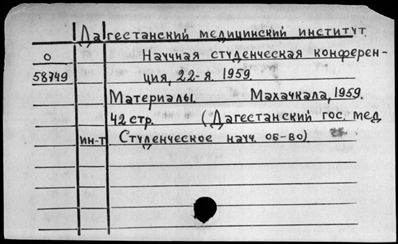 Дагестанский медицинский институт.
О Научная студенческая конферен-
58749 ция, 22-я. 1959.
Материалы. Махачкала, 1959.
42 стр. (Дагестанский гос. мед.
ин-т Студенческое науч. об-во)